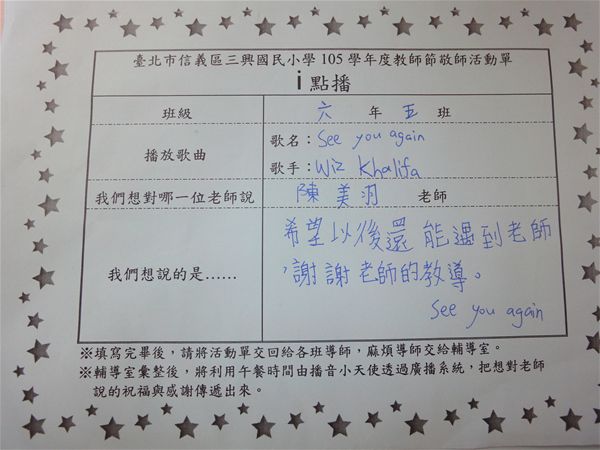 臺北市信義區三興國民小學 105 學年度教師節敬師活動單
i 點播
班級 六 年 五 班
播放歌曲 歌名：See you again
歌手：Wiz Khalifa
我們想對哪一位老師說 陳美羽 老師
我們想說的是…… 希望以後還能遇到老師
，謝謝老師的教導。
See you again
※填寫完畢後，請將活動單交回給各班導師，麻煩導師交給輔導室。
※輔導室彙整後，將利用午餐時間由播音小天使透過廣播系統，把想對老師
說的祝福與感謝傳遞出來。